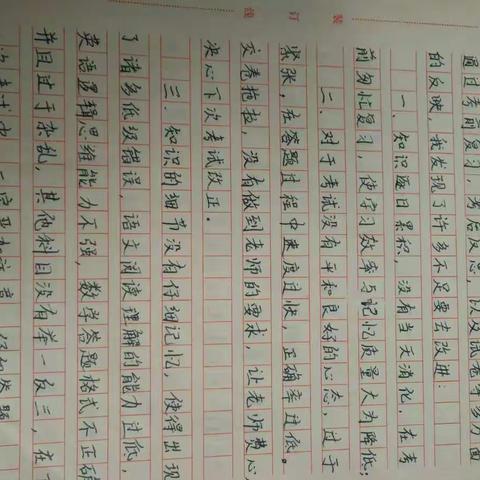 装 订 线
通过考前复习，考后反思，以及试卷中多方面
的反映，我发现了许多不足要去改进：
一、知识逐日累积，没有当天消化，在考
前匆忙复习，使学习效率与记忆质量大为降低；
二、对于考试没有平和良好的心态，过于
紧张，在答题过程中速度过快，正确率过低。
交卷拖拉，没有做到老师的要求，让老师费心，
决心下次考试改正。
三、知识的细节没有仔细记忆，使得出现
了诸多低级错误，语文阅读理解的能力过低，
英语逻辑思维能力不强，数学答题格式不正确
并且过于杂乱，其他科目没有举一反三，在